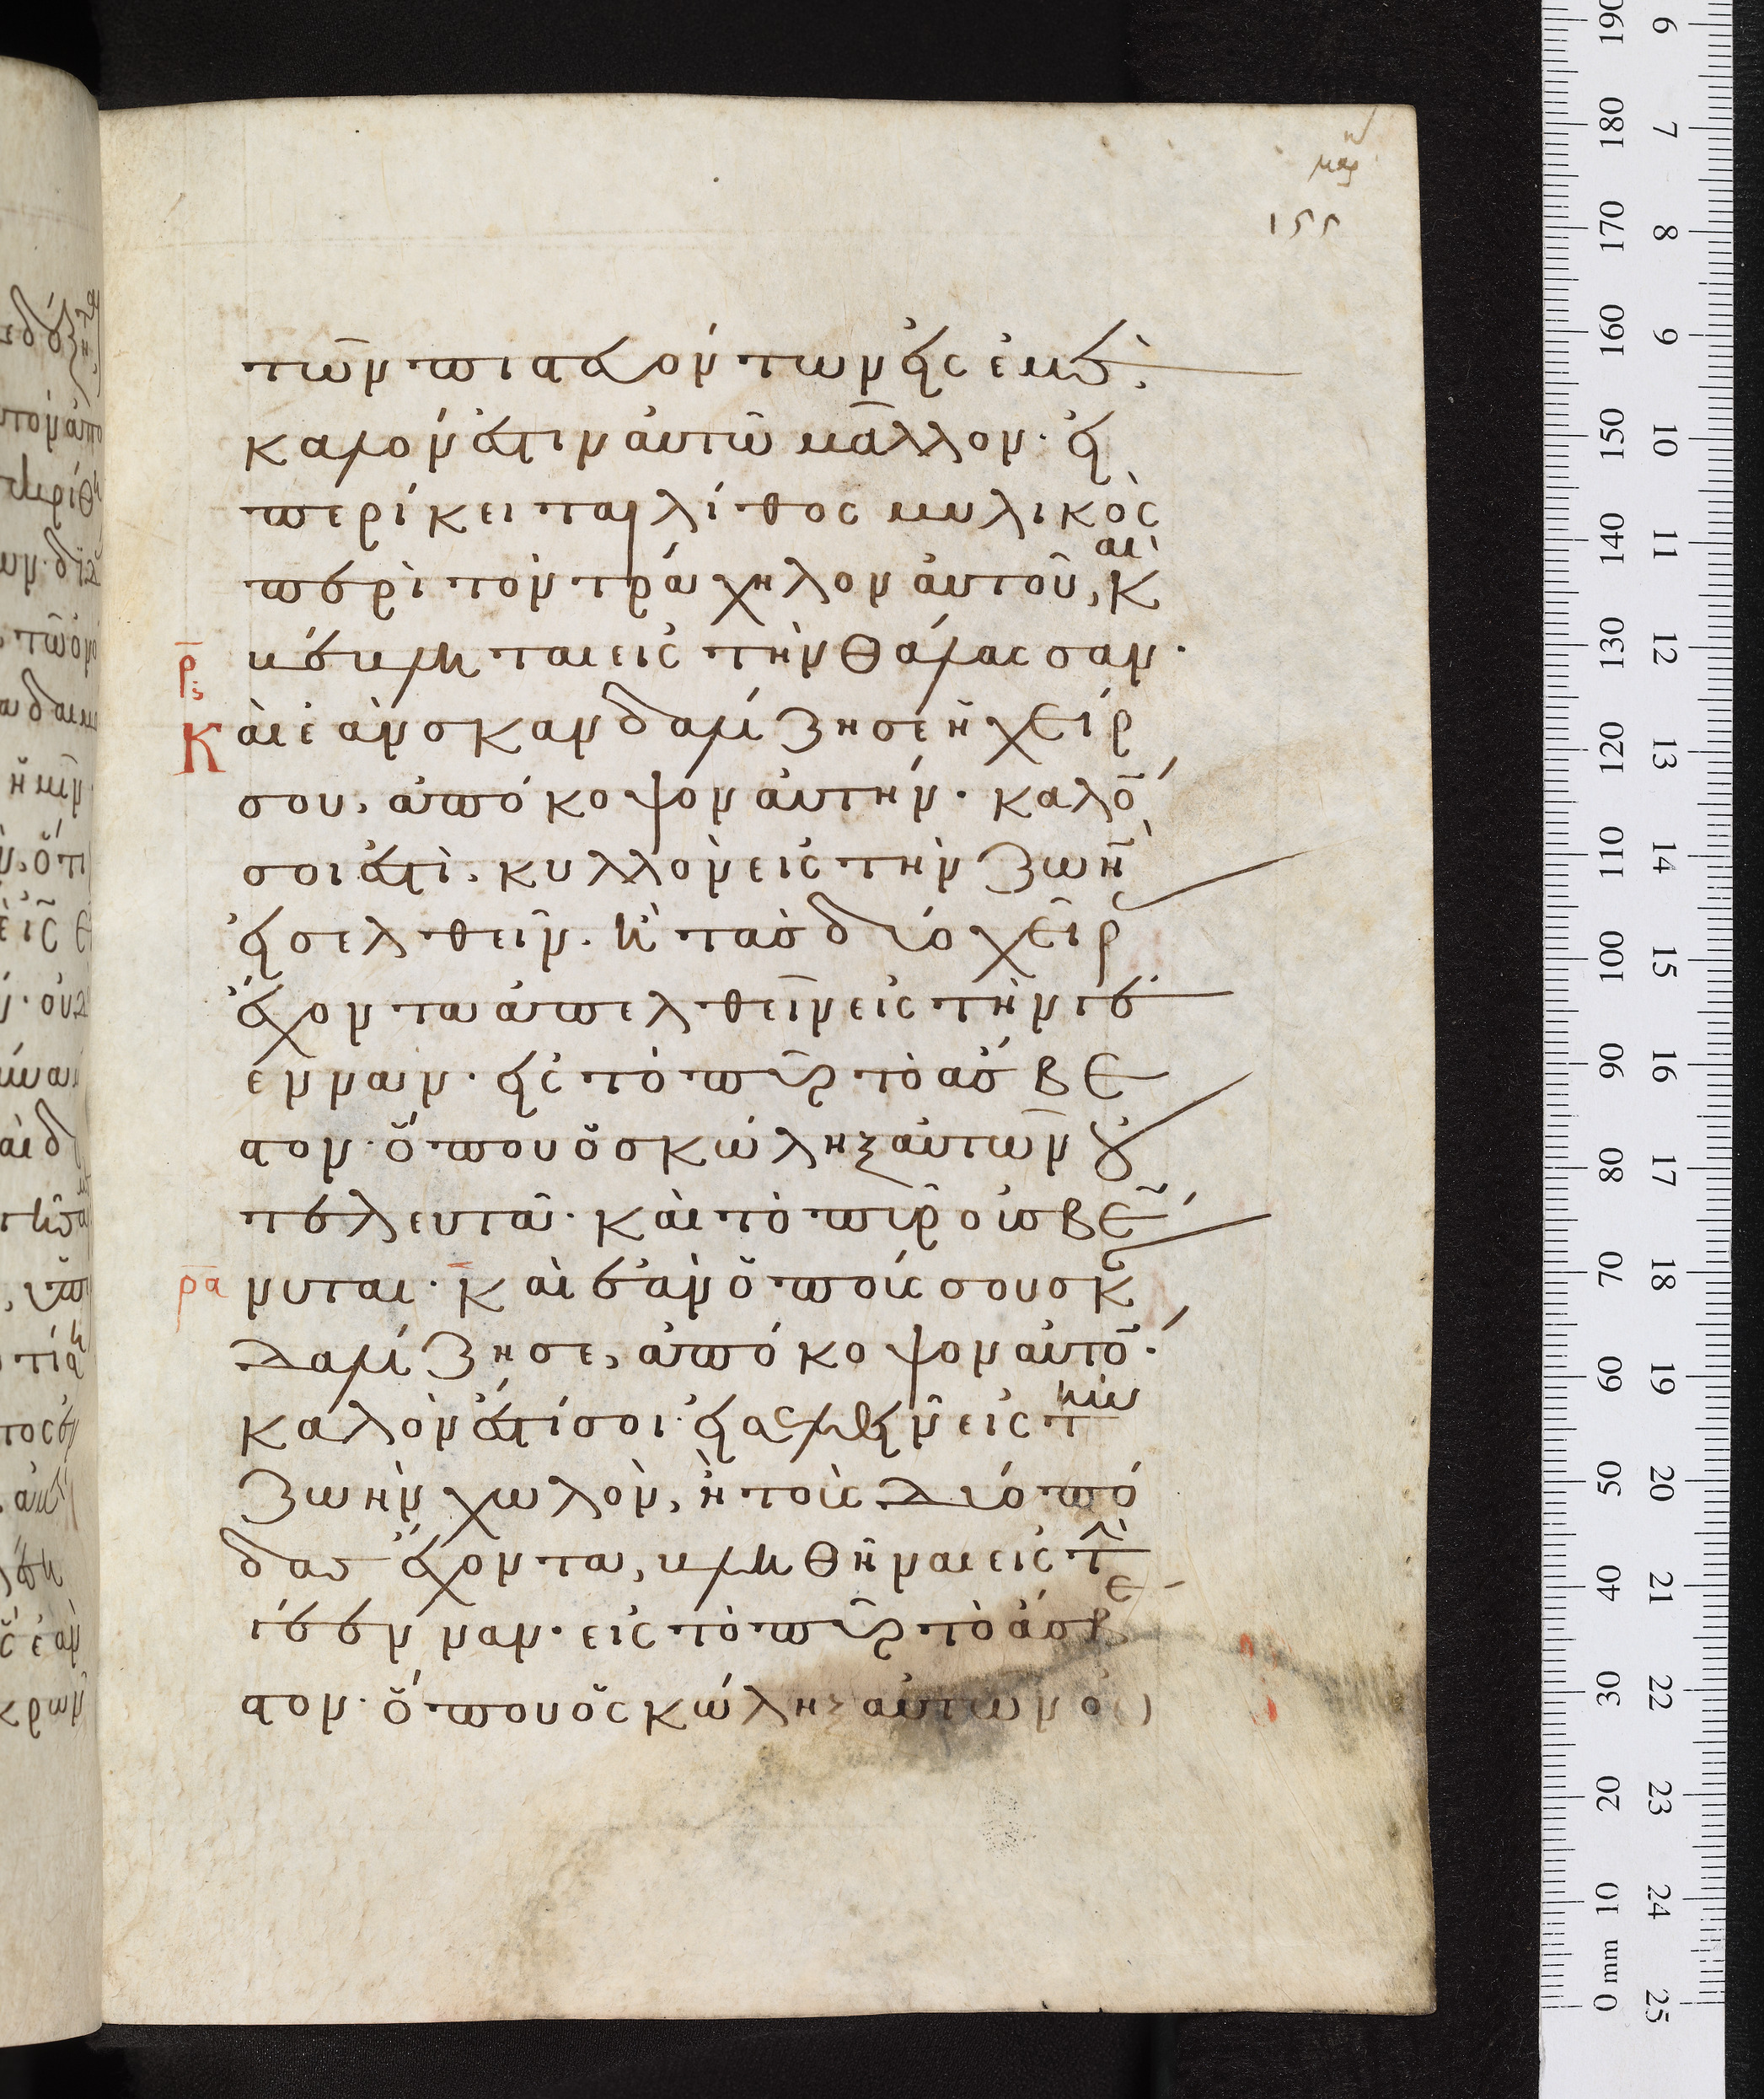 μαρ
155
τῶν πιστευόντων εἰς ἐμὲ·
καλόν ἐστιν ἀυτῶ μᾶλλον· εἰ
περίκειται λίθος μυλικὸς
περὶ τὸν τράχηλον ἀυτοῦ, καὶ
βέβληται εἰς τὴν θάλασσαν·
ρ
Καὶ ἐὰν σκανδαλίζη σε ἡ χείρ
σου, ἀπόκοψον ἀυτήν· καλό
σοι ἐστὶ, κυλλὸν εἰς τὴν ζωὴ
εἰσελθεῖν· ἢ τὰς δύο χεῖρ
ἔχοντα ἀπελθεῖν εἰς τὴν γέ
ενναν· εἰς τὸ πῦρ τὸ ἄσβε
στον· ὅπου ὁ σκώληξ ἀυτῶν οὐ
τελευτᾶ· καὶ τὸ πῦρ οὐ σβέ
ρα νυται· Καὶ ἐὰν ὁ ποῦς σου σκ
δαλίζη σε, ἀπόκοψον ἀυτό·
καλὸν ἐστί σοι· εἰσελθεῖν εἰς τὴν
ζωὴν χωλὸν, ἢ τοὺς δύο πό
δας ἔχοντα, βληθῆναι εἰς τὴ
γέενναν· εἰς τὸ πῦρ τὸ ἄσβε
στον· ὅπου ὁ σκώληξ ἀυτῶν οὐ